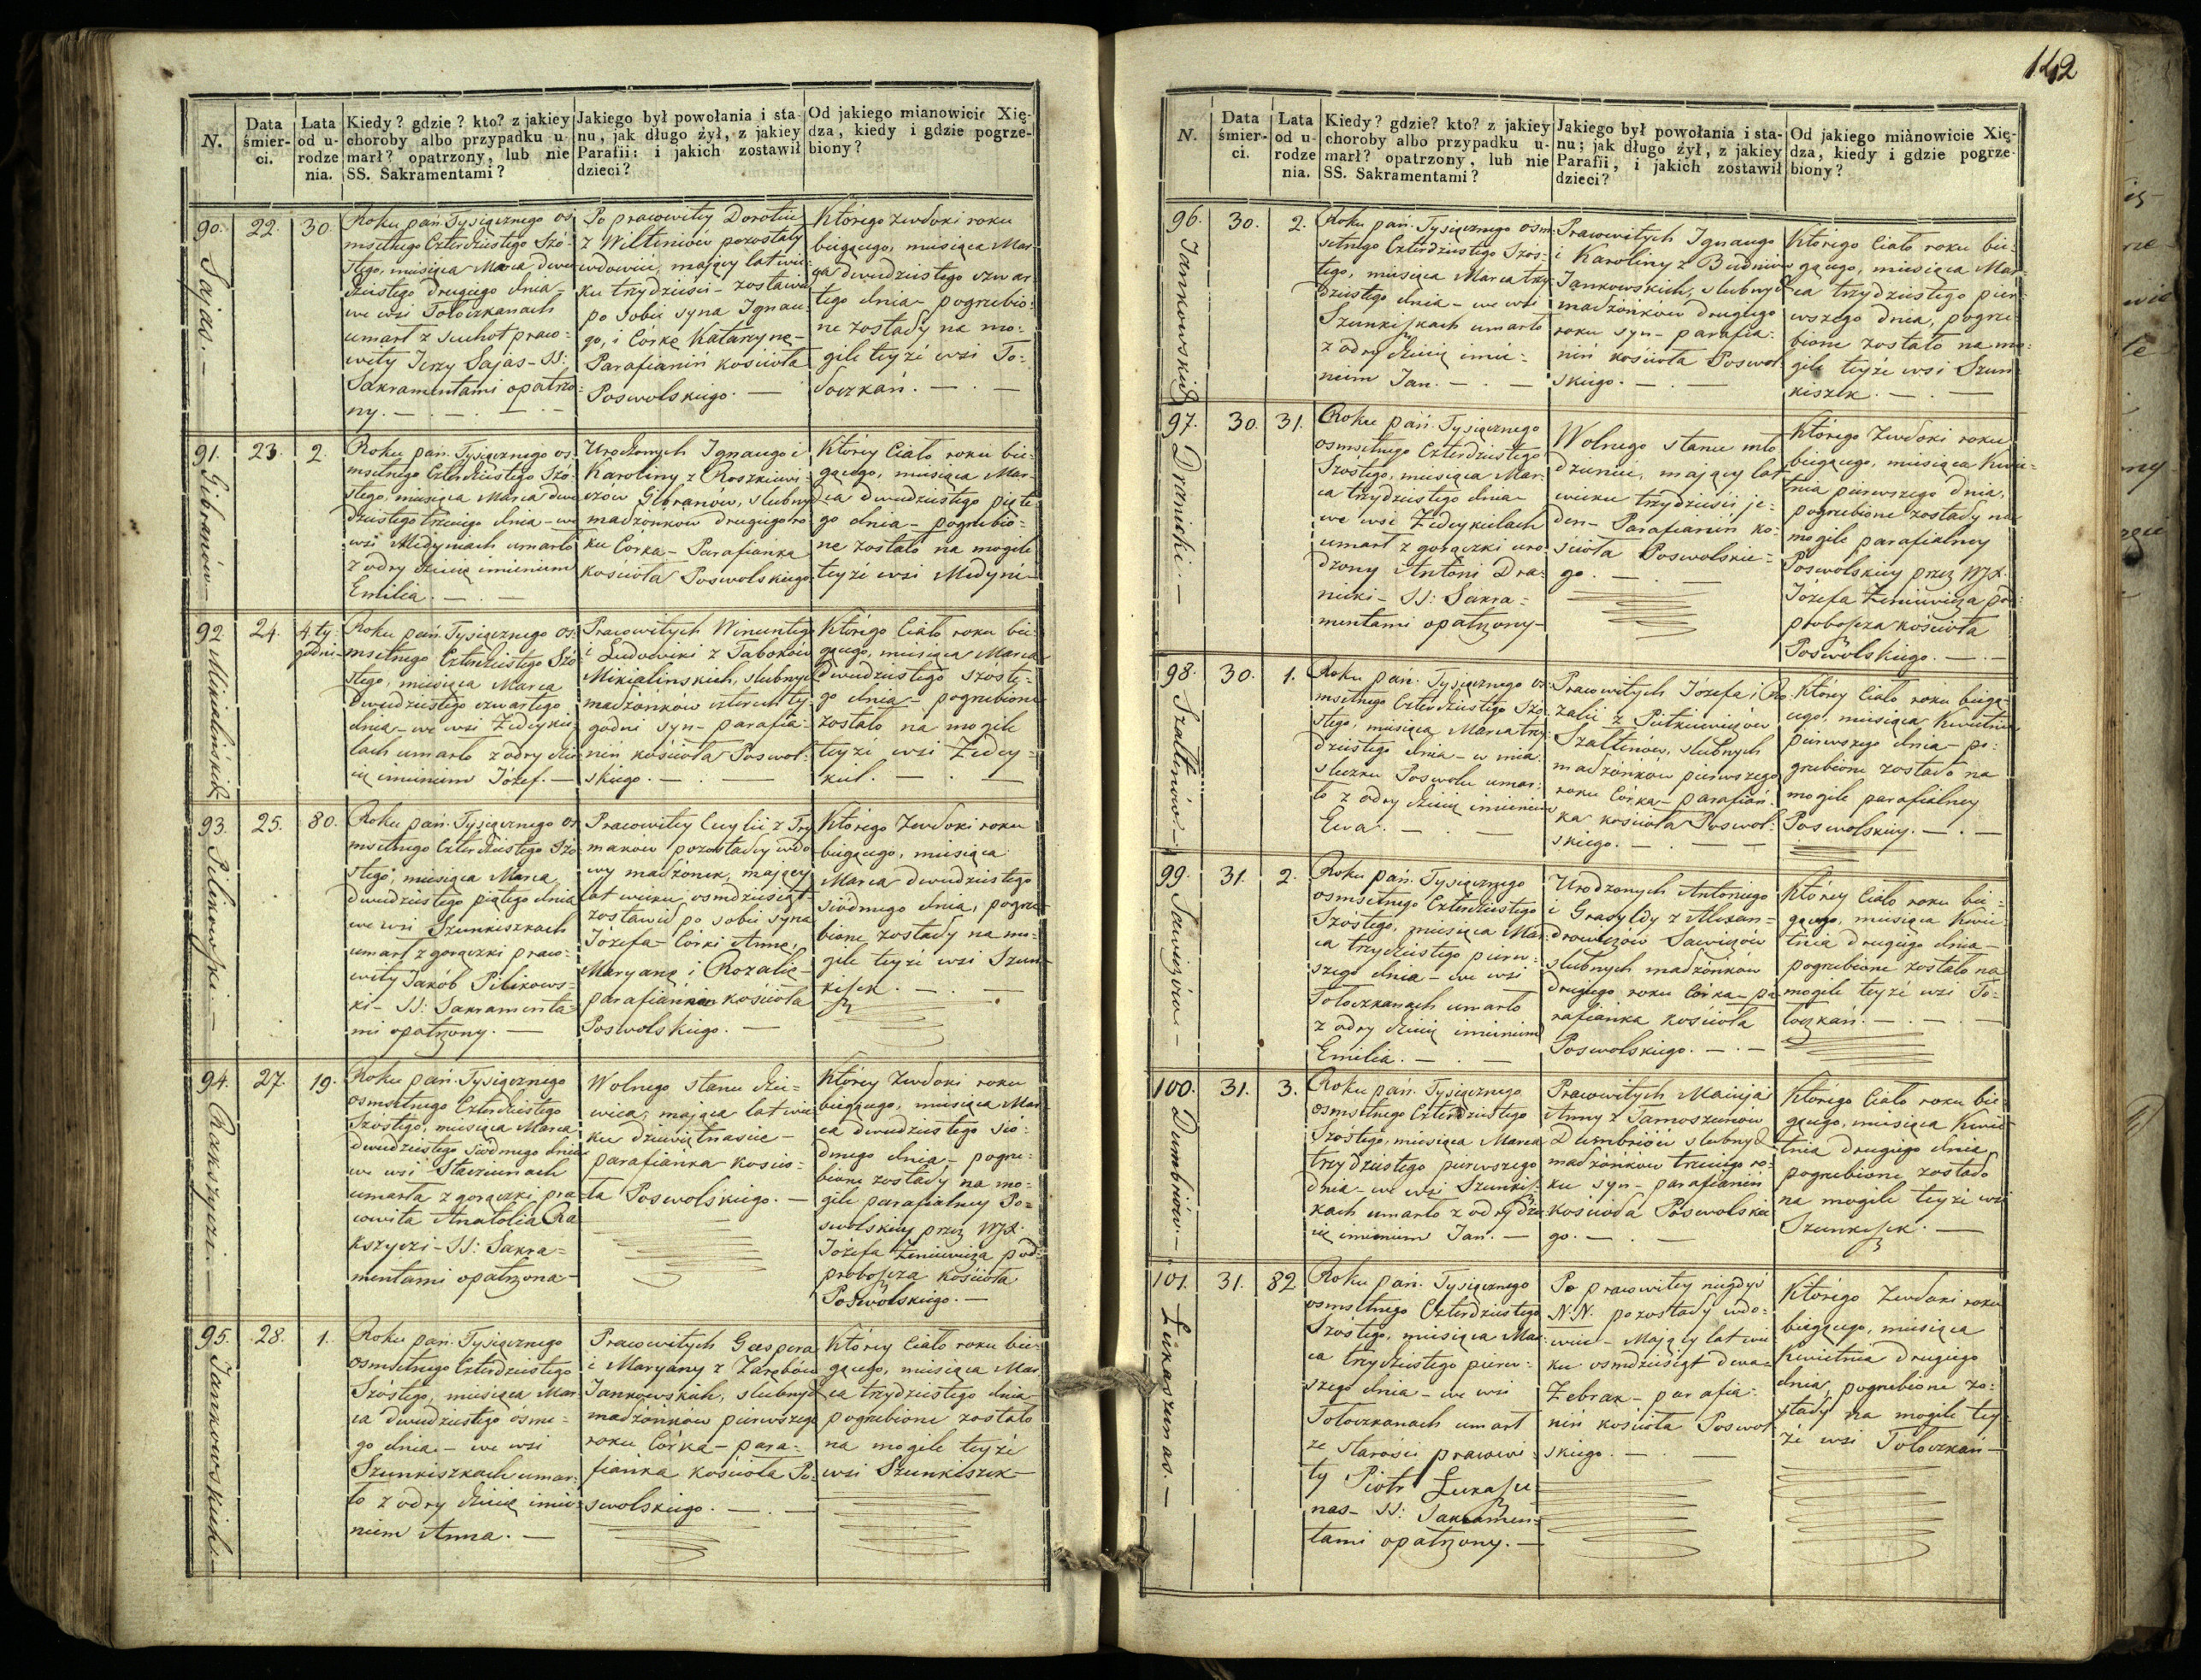 N.
Data śmier-
ci.
Lata
od u-
rodze
nia.
Kiedy? gdzie? kto? z jakiey
choroby albo przypadku u-
marł? opatrzony, lub nie
SS. Sakramentami?
Jakiego był powołania i sta-
nu, jak długo żył, z jakiey
Parafii: i jakich zostawił
dzieci?
Od jakiego mianowicie Xię-
dza, kiedy i gdzie pogrze-
biony?
90.
Sajas.—
22.
30.
Roku pań. Tysiącznego os-
msetnego Czterdziestego Szó-
stego, miesiąca Marca dwu-
dziestego drugiego dnia-
we wsi Tołoczkanach
umarł z suchot praco-
wity Jerzy Sajas- SS:
Sakramentami opatrzo-
ny.—
Po pracowitey Dorotie
z Wiltiniów pozostały
wdowiec, mający lat wie-
ku trzydzieści- zostawił
po sobie syna Ignac-
go, i Córkę Katarzynę-
Parafianin kościoła
Poswolskiego.—
Którego zwłoki roku
biegącego, miesiąca Mar-
ca dwudziestego czwar-
tego dnia- pogrzebio-
ne zostały na mo-
gile teyże wsi To-
łoczkań.—
91.
Gibranów—
23.
2.
Roku pań. Tysiącznego os-
msetnego Czterdziestego Szó-
stego, miesiąca Marca dwu-
dziestego trzeciego dnia- we
wsi Medyniach umarło
z odry dziecię imieniem
Emilia.—
Urodzonych Ignacego i
Karoliny z Roszkiewi-
czów Gibranów, slubnych
madżonków drugiego ro-
ku Córka- Parafianka
kościoła Poswolskiego
Którey Ciało roku bie-
gącego, miesiąca Mar-
ca dwudziestego piąte-
go dnia- pogrzebio-
ne zostało na mogile
teyże wsi Medyń-
92.
Mikialińskich
24.
4. ty-
godni-
Roku pań. Tysiącznego os-
msetnego Czterdziestego Szó-
stego, miesiąca Marca
dwudziestego czwartego
dnia- we wsi Żideyki-
lach umarło z odry dzie-
cię imieniem Józef.—
Pracowitych Wincentego
i Ludowiki z Taborów
Mikialinskich, slubnych
madżonków czterech ty-
godni syn- parafia-
nin kościoła Poswol-
skiego.—
Którego Ciało roku bie-
gącego, miesiąca Marca
dwudziestego szóste-
go dnia- pogrzebione
zostało na mogile
teyże wsi Żidey-
kiel.—
93.
Pilikowski—
25.
80.
Roku pań. Tysiącznego os-
msetnego Czterdziestego Szó-
stego, miesiąca Marca
dwudziestego piątego dnia
we wsi Szunkiszkach
umarł z gorączki praco-
wity Jakób Pilikows-
ki- SS: Sakramenta-
mi opatrzony.—
Pracowitey Cecylii z Try-
maków pozostałey wdo-
wy madżonek, mający
lat wieku osmdziesiąt-
zostawił po sobie syna
Józefa- Córki Annę,
Maryanę i Rozalię-
parafianin kościoła
Poswolskiego.—
Którego Zwłoki roku
biegącego, miesiąca
Marca dwudziestego
siódmego dnia, pogrze-
bione zostały na mo-
gile teyże wsi Szun-
kiszek.—
94.
Rakszyczi.—
27.
19.
Roku pań. Tysiącznego
osmsetnego Czterdziestego
Szóstego, miesiąca Marca
dwudziestego siódmego dnia
we wsi Staciunach
umarła z gorączki pra-
cowita Anatolia Ra-
kszyczi- SS: Sakra-
mentami opatrzona-
Wolnego stanu dzie-
wica, mająca lat wie-
ku dziewiętnaście-
parafianka kościo-
ła Poswolskiego.—
Którey Zwłoki roku
biegącego, miesiąca Mar-
ca dwudziestego sió-
dmego dnia- pogrze-
bione zostały na mo-
gile parafialney Po-
swolskiey przez WJX.
Józefa Żeniewicza pod-
proboszcza kościoła
Poswolskiego.—
95.
Jankowskich—
28.
1.
Roku pań. Tysiącznego
osmsetnego Czterdziestego
Szóstego, miesiąca Mar-
ca dwudziestego ósme-
go dnia- we wsi
Szunkiszkach umar-
ło z odry dziecię imie-
niem Anna.—
Pracowitych Gaspera
i Maryany z Zarębów
Jankowskich, slubnych
madżonków pierwszego
roku Córka- para-
fianka kościoła Po-
swolskiego.—
Którey Ciało roku bie-
gącego, miesiąca Mar-
ca trzydziestego dnia
pogrzebione zostało
na mogile teyże
wsi Szunkiszek—
142
N.
Data śmier-
ci.
Lata
od u-
rodze
nia.
Kiedy? gdzie? kto? z jakiey
choroby albo przypadku u-
marł? opatrzony, lub nie
SS. Sakramentami?
Jakiego był powołania i sta-
nu; jak długo żył, z jakiey
Parafii, i jakich zostawił
dzieci?
Od jakiego mianowicie Xię-
dza, kiedy i gdzie pogrze-
biony?
96.
Jankowskich
30.
2.
Roku pań. Tysiącznego osm-
setnego Czterdziestego Szós-
tego, miesiąca Marca trzy-
dziestego dnia- we wsi
Szunkiszkach umarło
z odry dziecię imie-
niem Jan.—
Pracowitych Ignacego
i Karoliny z Budniów
Jankowskich, slubnych
madżonków drugiego
roku syn- parafia-
nin kościoła Poswol-
skiego.—
Którego Ciało roku bie-
gącego, miesiąca Mar-
ca trzydziestego pier-
wszego dnia, pogrze-
bione zostało na mo-
gile teyże wsi Szun-
kiszek.—
97.
Dranicki.—
30.
31.
Roku pań. Tysiącznego
osmsetnego Czterdziestego
Szóstego, miesiąca Mar-
ca trzydziestego dnia
we wsi Żideykielach
umarł z gorączki uro-
dzony Antoni Dra-
nicki- SS: Sakra-
mentami opatrzony-
Wolnego stanu mło-
dzieniec, mający lat
wieku trzydzieści je-
den- Parafianin ko-
ścioła Poswolskie-
go.—
Którego Zwłoki roku
biegącego, miesiąca Kwie-
tnia pierwszego dnia,
pogrzebione zostały na
mogile parafialney
Poswolskiey przez WJX.
Józefa Żeniewicza pod-
proboszcza kościoła
Poswolskiego.—
98.
Szaltinów—
30.
1.
Roku pań. Tysiącznego os-
msetnego Czterdziestego Szó-
stego, miesiąca Marca trzy-
dziestego dnia- w mia-
steczku Poswolu umar-
ło z odry dziecię imieniem
Ewa.—
Pracowitych Józefa i Ro-
zalii z Putkiewiczów
Szaltinów, slubnych
madżonków pierwszego
roku Córka- parafian-
ka kościoła Poswol-
skiego.—
Którey Ciało roku biegą-
cego, miesiąca Kwietnia
pierwszego dnia- po-
grzebione zostało na
mogile parafialney
Poswolskiey.—
99.
Sawiczów—
31.
2.
Roku pań. Tysiącznego
osmsetnego Czterdziestego
Szóstego, miesiąca Mar-
ca trzydziestego pierw-
szego dnia- we wsi
Tołoczkanach umarło
z odry dziecię imieniem
Emilia.—
Urodzonych Antoniego
i Grasyldy z Alexan-
drowiczów Sawiczów
slubnych madżonków
drugiego roku Córka- pa-
rafianka kościoła
Poswolskiego.—
Którey Ciało roku bie-
gącego, miesiąca Kwie-
tnia drugiego dnia-
pogrzebione zostało na
mogile teyże wsi To-
łoczkań.—
100.
Dumbriów.—
31.
3.
Roku pań. Tysiącznego
osmsetnego Czterdziestego
Szóstego, miesiąca Marca
trzydziestego pierwszego
dnia- we wsi Szunkisz-
kach umarło z odry dzie-
cię imieniem Jan.—
Pracowitych Macieja i
Anny z Jamoszuniów
Dumbriów slubnych
madżonków trzeciego ro-
ku syn- parafianin
kościoła Poswolskie-
go.—
Którego Ciało roku bie-
gącego, miesiąca Kwie-
tnia drugiego dnia
pogrzebione zostało
na mogile teyże wsi
Szunkiszek.—
101.
Łukaszunas.—
31.
82.
Roku pań. Tysiącznego
osmsetnego Czterdziestego
Szóstego, miesiąca Mar-
ca trzydziestego pierw-
szego dnia- we wsi
Tołoczkanach umarł
ze starości pracowi-
ty Piotr Łukaszu-
nas- SS: Sakramen-
tami opatrzony.—
Po pracowitey niegdyś
N.N. pozostały wdo-
wiec- Mający lat wie-
ku osmdziesiąt dwa-
Żebrak- parafia-
nin kościoła Poswol-
skiego.—
Którego Zwłoki roku
biegącego, miesiąca
Kwietnia drugiego
dnia, pogrzebione zo-
stały na mogile tey-
że wsi Tołoczkań—